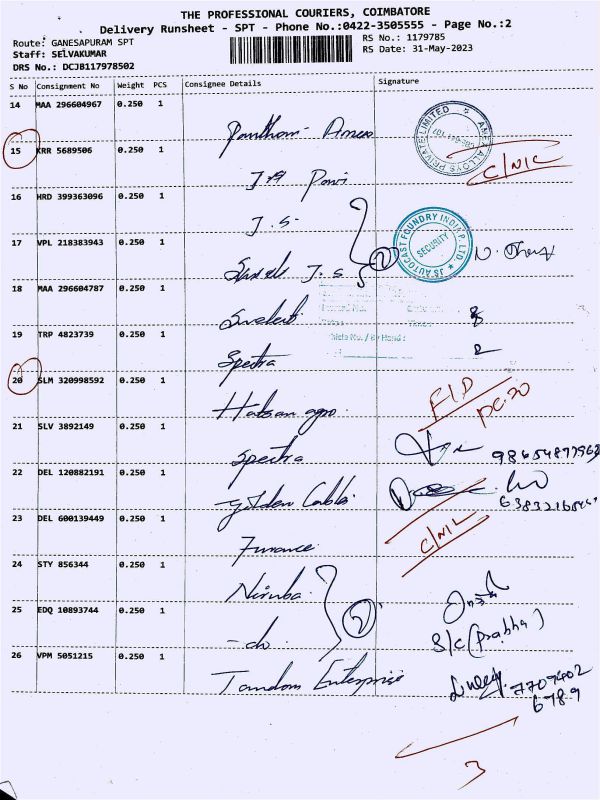 THE PROFESSIONAL COURIERS, COIMBATORE
Delivery Runsheet - SPT - Phone No.:0422-3505555 - Page No.:2
Route: GANESAPURAM SPT
RS No.: 1179785
Staff: SELVAKUMAR
RS Date: 31-May-2023
DRS No.: DCJB117978502
S No Consignment No Weight PCS Consignee Details Signature
14 MAA 296604967 0.250 1
15 KRR 5689506 0.250 1
C/NIC
16 HRD 399363096 0.250 1
J.S.
17 VPL 218383943 0.250 1
J.S
2
JS AUTOCAST FOUNDRY INDIA P. LTD
SECURITY
18 MAA 296604787 0.250 1
19 TRP 4823739 0.250 1
Spectra
20 SLM 320998592 0.250 1
Hatsan agro
F/D
21 SLV 3892149 0.250 1
Spectra
22 DEL 120882191 0.250 1
Golden Cables
23 DEL 600139449 0.250 1
Furnace
24 STY 856344 0.250 1
Niruba
25 EDQ 10893744 0.250 1
-do-
2
S/c (Prabha)
26 VPM 5051215 0.250 1
Tandom Enterprise
7707402
6789
3